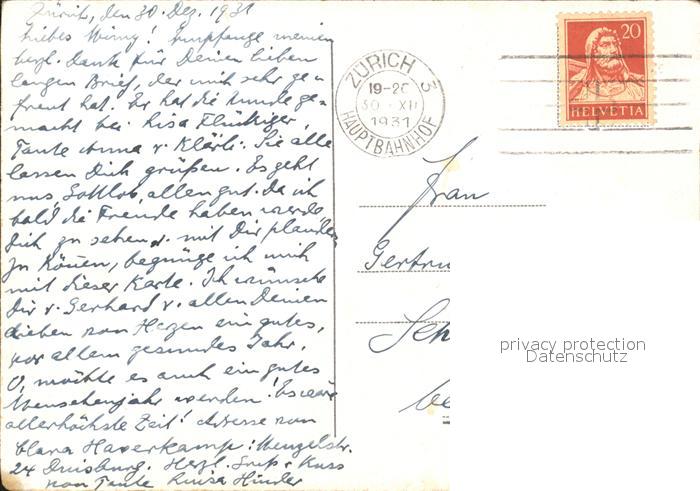 Zürich, den 30. Dez. 1931
Liebes Mirny! Empfange meinen
herzl. Dank für Deinen lieben
langen Brief, der mich sehr ge-
freut hat. Er hat die Runde ge-
macht bei Lisa Flückiger,
Tante Anna u. Klärli. Sie alle
lassen Dich grüßen. Es geht
uns, Gottlob, allen gut. Da ich
bald die Freude haben werde
Dich zu sehen u. mit Dir plaudern
zu können, begnüge ich mich
mit dieser Karte. Ich wünsche
Dir u. Gerhard u. allen Deinen
Lieben von Herzen ein gutes,
vor allem gesundes Jahr.
O, möchte es auch ein gutes
Menschenjahr werden! Es wäre
allerhöchste Zeit! Adresse von
Clara Haverkamp: Wenzelstr.
24 Duisburg. Herzl. Gruß u. Kuss
von Tante Luisa Hinder
ZÜRICH 3
19-20
30 XII
1931
HAUPTBAHNHOF
20
HELVETIA
Frau
Gertru
Sch
be
privacy protection
Datenschutz